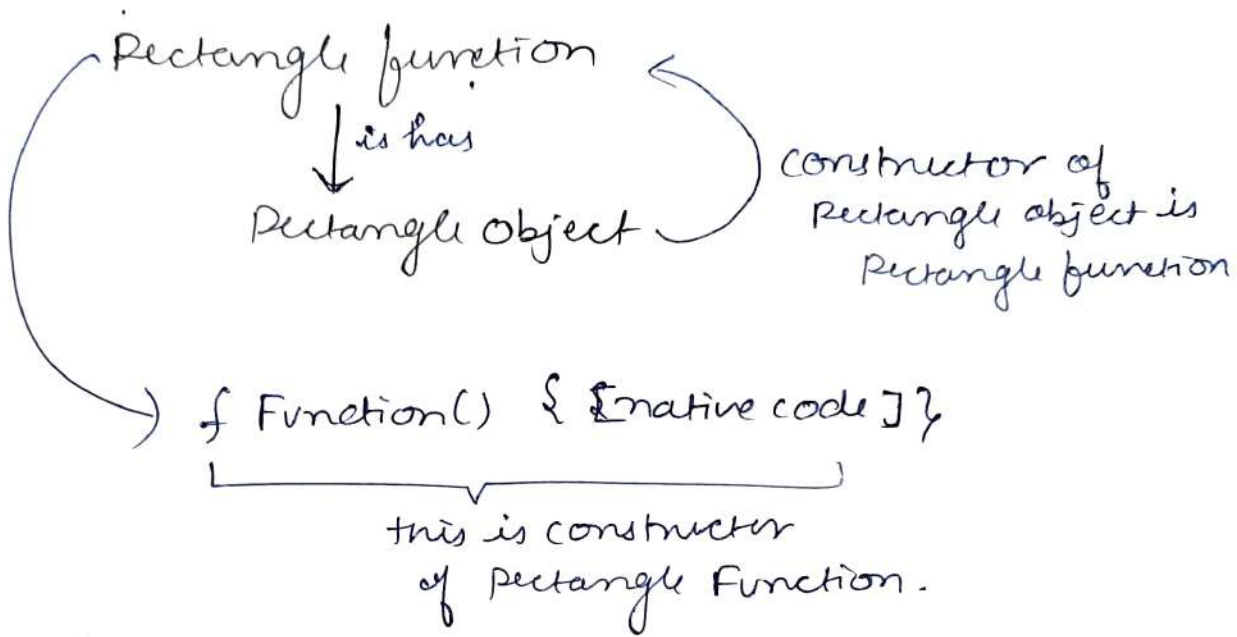 Rectangle function
is has
Rectangle Object
constructor of
Rectangle object is
Rectangle function
f Function() { [native code]}
this is constructer
of Rectangle Function.